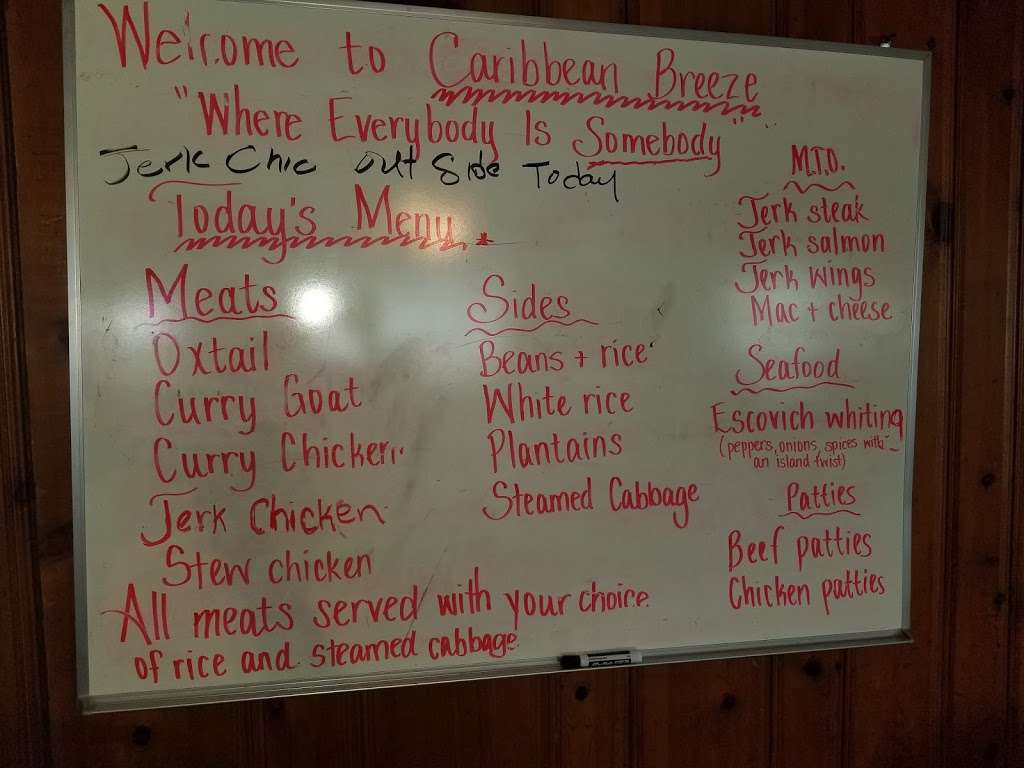 Welcome to Caribbean Breeze
"Where Everybody Is Somebody"
Jerk Chic out Side Today
Today's Menu.
Meats
Oxtail
Curry Goat
Curry Chicken
Jerk Chicken
Stew chicken
Sides
Beans + rice
White rice
Plantains
Steamed Cabbage
M.T.O.
Jerk steak
Jerk salmon
Jerk wings
Mac + cheese
Seafood
Escovich whiting
(peppers, onions, spices with
an island twist)
Patties
Beef patties
Chicken patties
All meats served with your choice
of rice and steamed cabbage